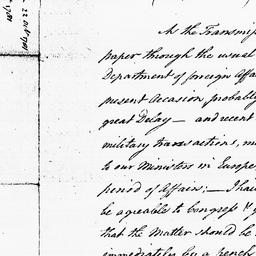 22 Oct 1781
As the Transmip
paper through the usual
Department of foreign Affai
present Occasion probably
great Delay — and recent
military transactions, m
to our Ministers in Europe
period of Affairs; — I hav
be agreeable to Congress
that the Matter should be
immediately by a french